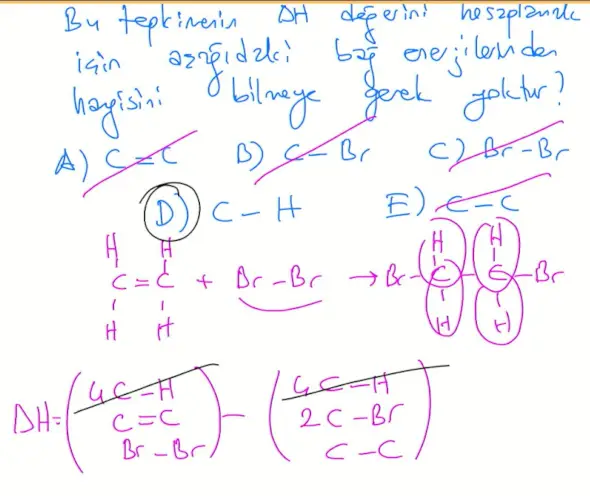 Bu tepkimenin ΔH değerini hesaplamak
için aşağıdaki bağ enerjilerinden
hangisini bilmeye gerek yoktur?
A) C=C B) C-Br C) Br-Br
D) C-H E) C-C
H H H H
C=C + Br-Br → Br-C-C-Br
H H H H
ΔH= (4C-H) - (4C-H)
C=C 2C-Br
Br-Br C-C